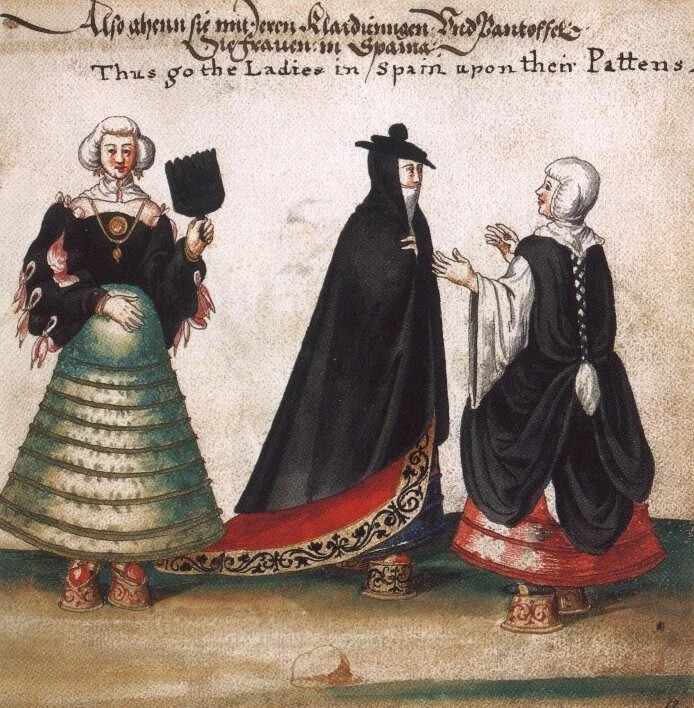 Also ghenn sie mit Jeren Klaidüngen Vnd Pantoffel
Die frauen in Spania
Thus go the Ladies in Spain upon their Pattens.